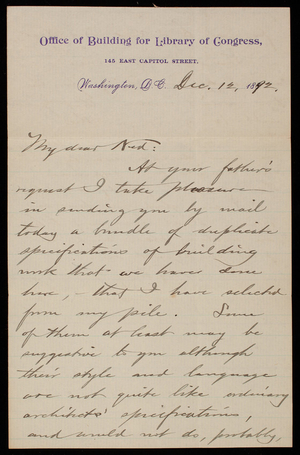 Office of Building for Library of Congress,
145 EAST CAPITOL STREET,
Washington, D.C. Dec. 12, 1892.
My dear Ned:
At your father's
request I take pleasure
in sending you by mail
today a bundle of duplicate
specifications of building
work that we have done
here, that I have selected
from my pile. Some
of them at least may be
suggestive to you although
their style and language
are not quite like ordinary
architects' specifications,
and would not do, probably,